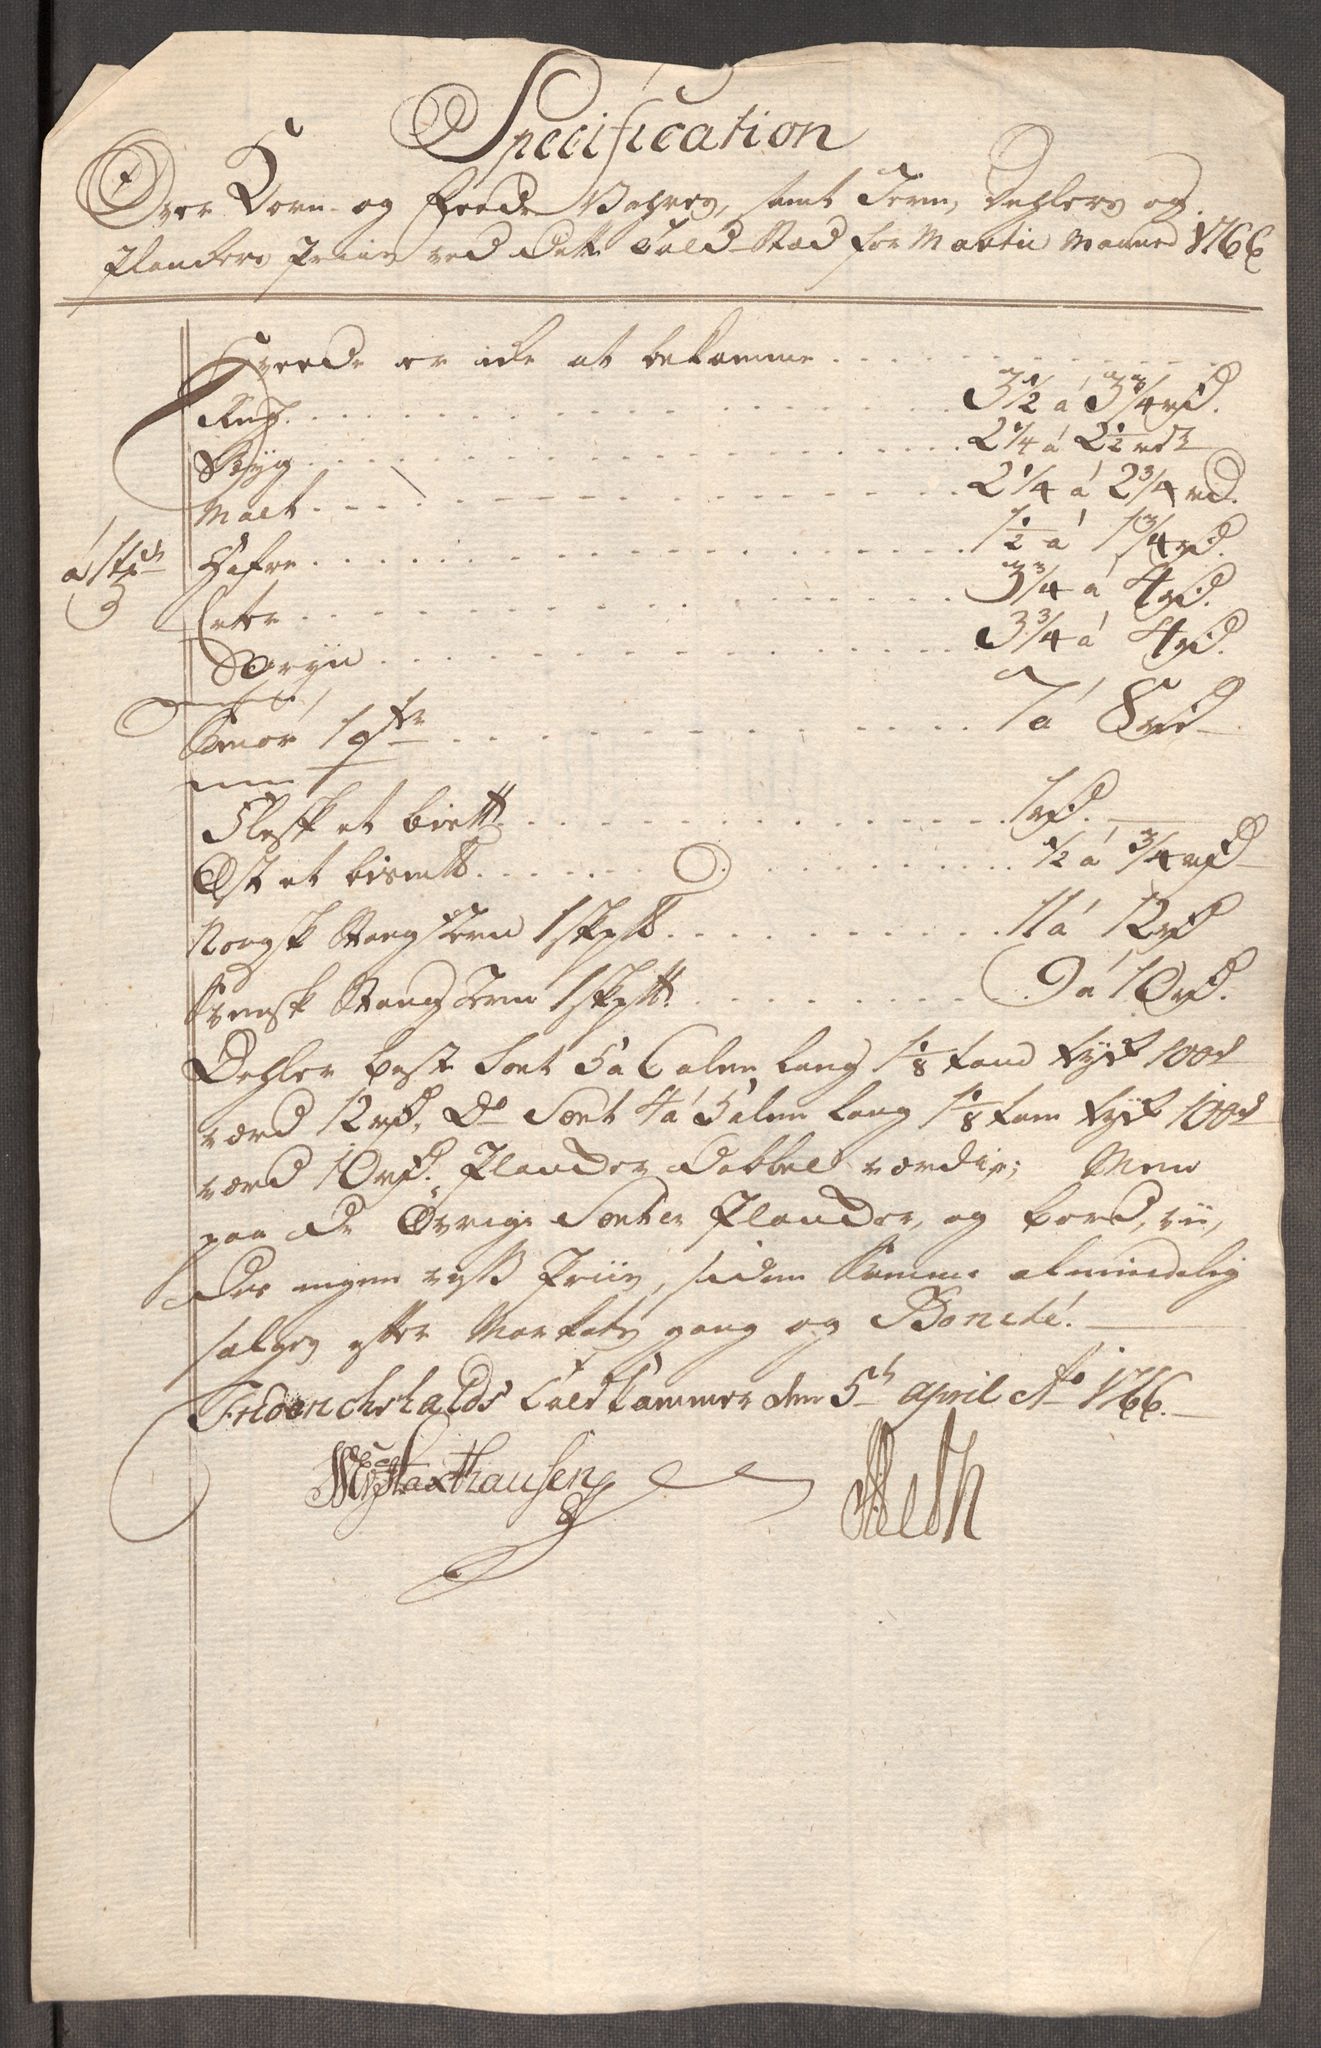 Specification
Over Korn- og Feede Vahres, samt Jern, Dehlers og
Planckers Priis ved Dette Told-Stæd for Martii Maaned 1766
Hvede er icke at bekomme
Rug 3 1/2 á 3 3/4 rd.
Byg 2 1/4 á 2 1/2 rdr
Malt 2 1/4 á 2 3/4 rd.
á 1 td
Hafre 1 1/2 á 1 3/4 rd.
Erter 3 3/4 á 4 rd.
Gryn 3 3/4 á 4 rd.
Smør 1 7 á 8 rd
Flesk et 1 rd.
Ost et 1/2 á 3/4 rd
Norsk Stang Jern 1 skp℔ 11 á 12 rd
Svensk Stang Jern 1 skp℔ 9 á 10 rd.
Dehler best Sort 5 á 6 alen lang 1 1/8 tom tyck 100d
værd 12 rd. Do Sort 4 á 5 alen lang 1 1/8 tom tyck 100d
værd 10 rd. Plancker Dobbel værdie; Men
paa de Øvrige Sorter Plancker, og bord, er,
der ingen vis Priis, siden samme almindelig
sælges efter Markets gang og Bonité.
Friderichshalds Told Kammer den 5te april Ao 1766.
Haxthausen